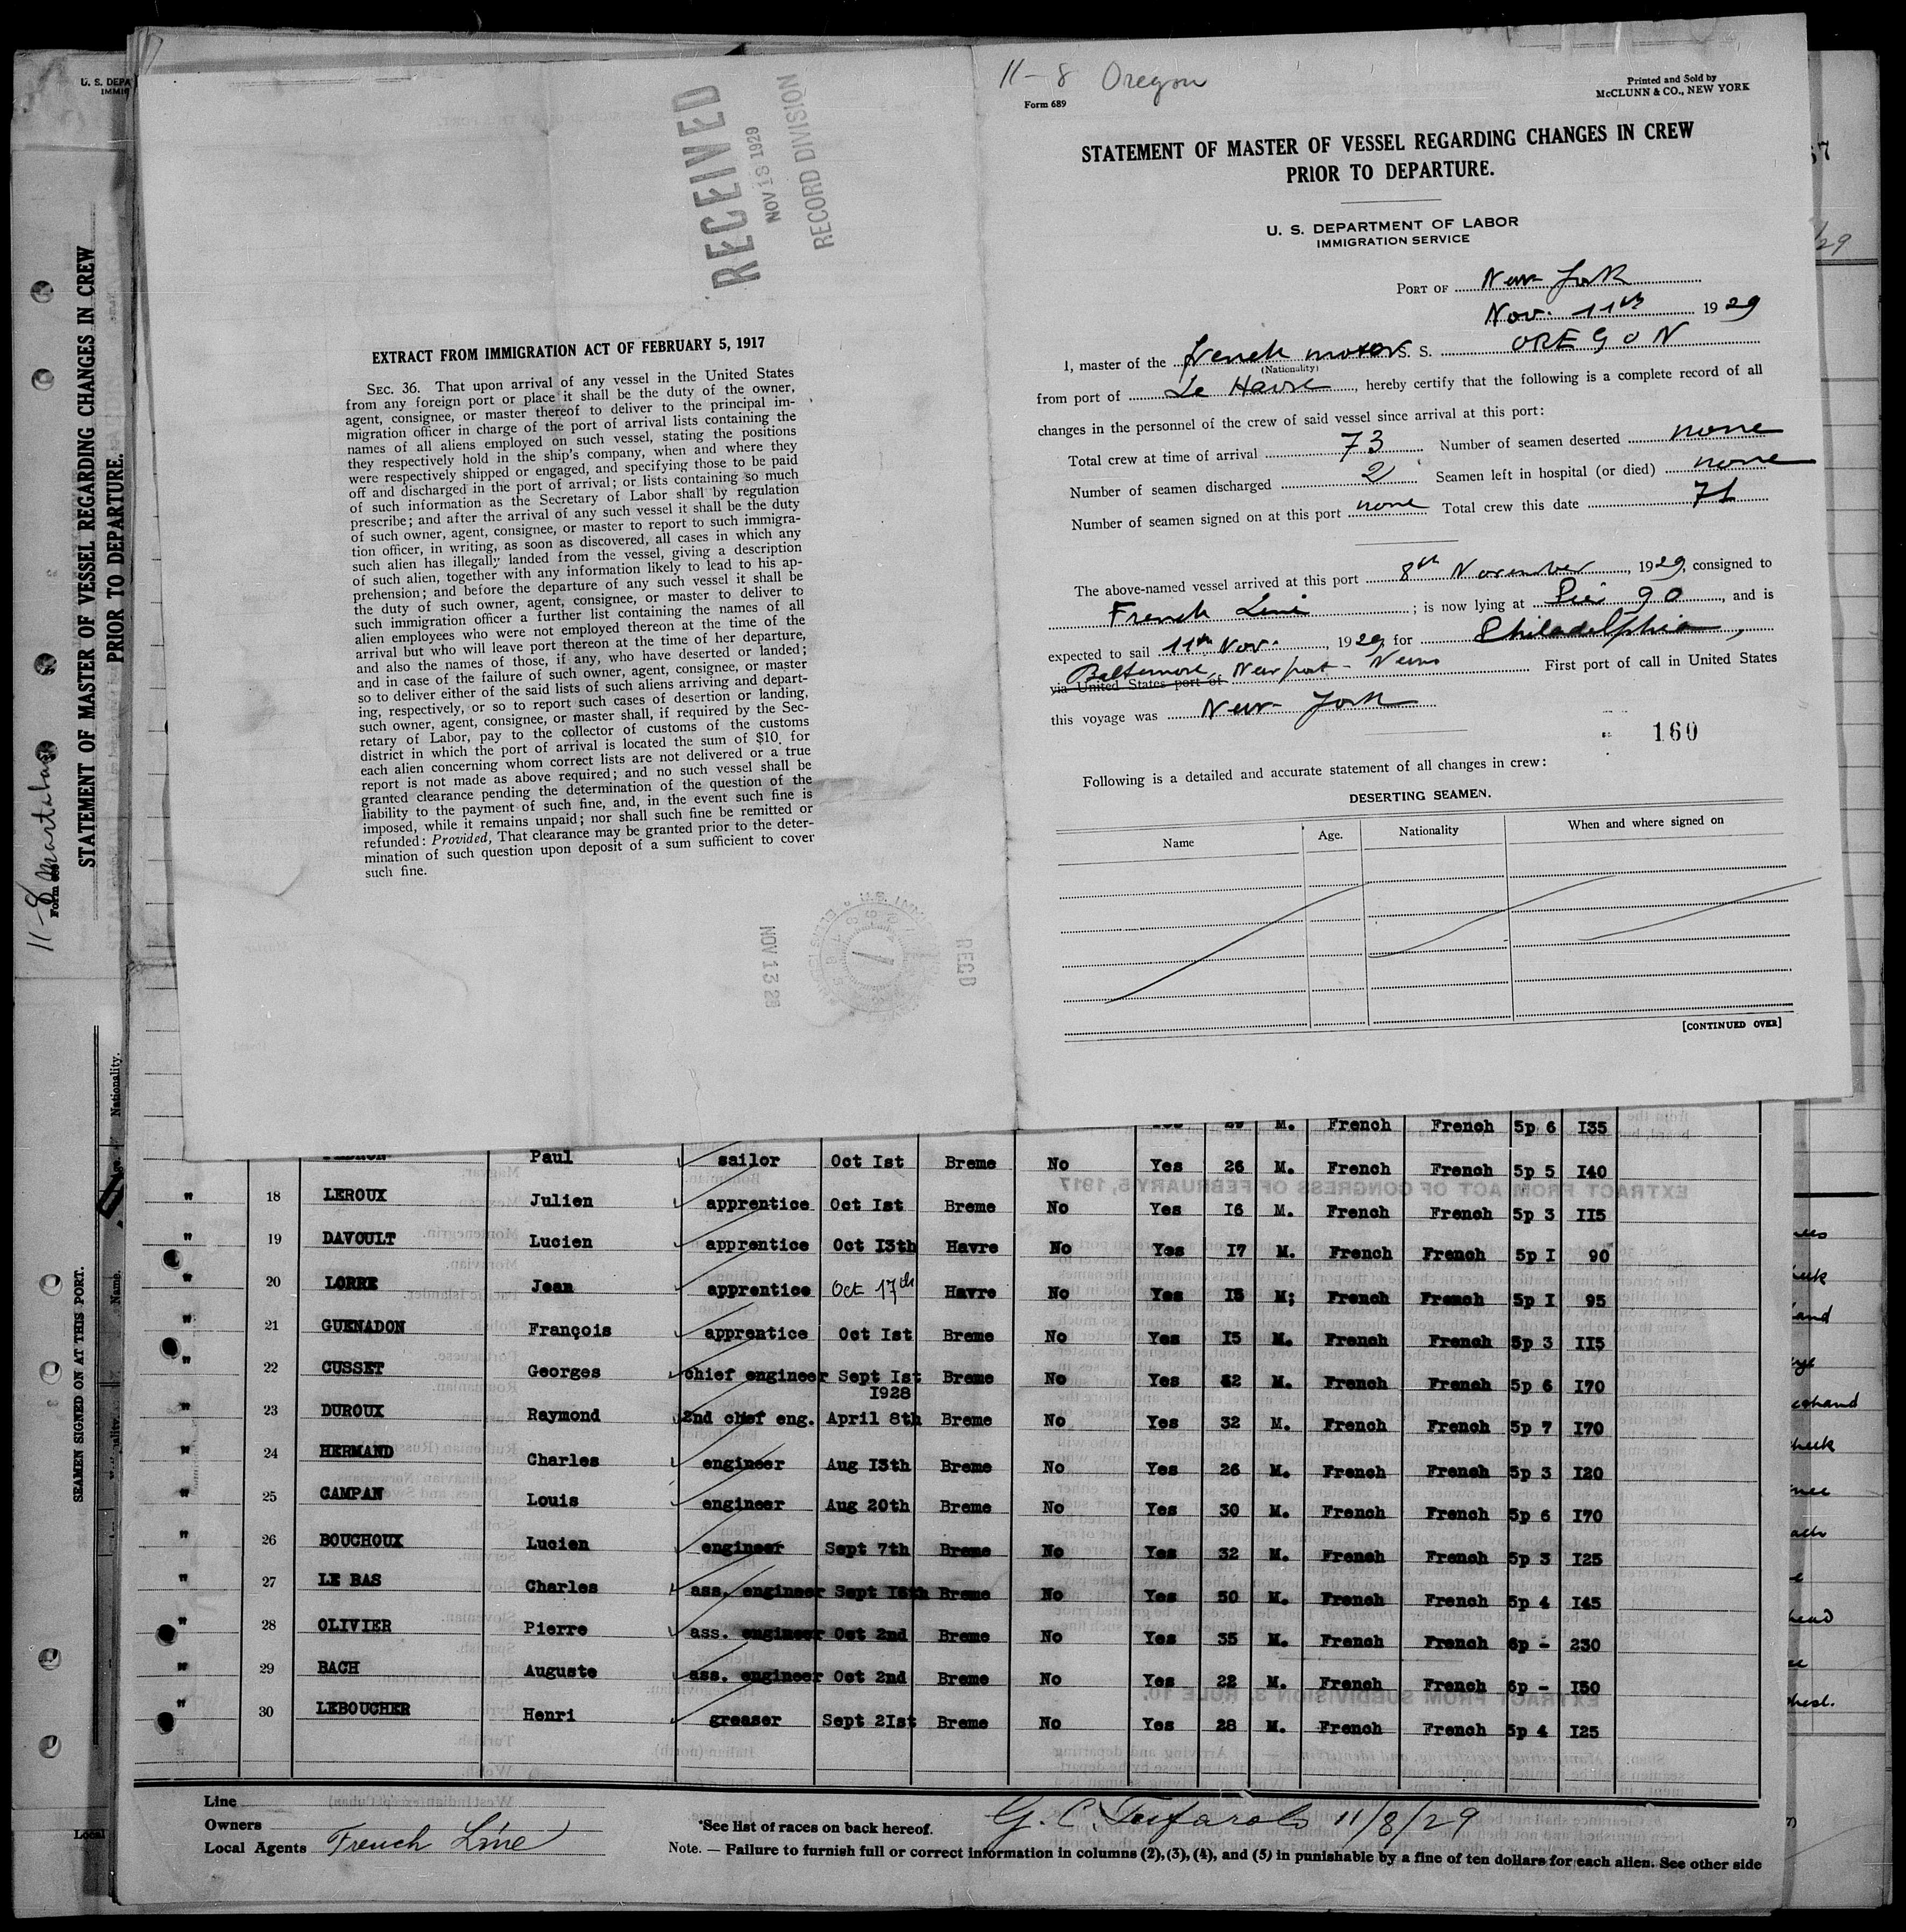 U. S. DEPA
IMMIG
STATEMENT OF MASTER OF VESSEL REGARDING CHANGES IN CREW
PRIOR TO DEPARTURE.
11-8
SEAMEN SIGNED ON AT THIS PORT.
Nationality.
Name.
Local
RECEIVED
NOV 13 1929
RECORD DIVISION
EXTRACT FROM IMMIGRATION ACT OF FEBRUARY 5, 1917
SEC. 36. That upon arrival of any vessel in the United States
from any foreign port or place it shall be the duty of the owner,
agent, consignee, or master thereof to deliver to the principal im-
migration officer in charge of the port of arrival lists containing the
names of all aliens employed on such vessel, stating the positions
they respectively hold in the ship's company, when and where they
were respectively shipped or engaged, and specifying those to be paid
off and discharged in the port of arrival; or lists containing so much
of such information as the Secretary of Labor shall by regulation
prescribe; and after the arrival of any such vessel it shall be the duty
of such owner, agent, consignee, or master to report to such immigra-
tion officer, in writing, as soon as discovered, all cases in which any
such alien has illegally landed from the vessel, giving a description
of such alien, together with any information likely to lead to his ap-
prehension; and before the departure of any such vessel it shall be
the duty of such owner, agent, consignee, or master to deliver to
such immigration officer a further list containing the names of all
alien employees who were not employed thereon at the time of the
arrival but who will leave port thereon at the time of her departure,
and also the names of those, if any, who have deserted or landed;
and in case of the failure of such owner, agent, consignee, or master
so to deliver either of the said lists of such aliens arriving and depart-
ing, respectively, or so to report such cases of desertion or landing,
such owner, agent, consignee, or master shall, if required by the Sec-
retary of Labor, pay to the collector of customs of the customs
district in which the port of arrival is located the sum of $10. for
each alien concerning whom correct lists are not delivered or a true
report is not made as above required; and no such vessel shall be
granted clearance pending the determination of the question of the
liability to the payment of such fine, and, in the event such fine is
imposed, while it remains unpaid; nor shall such fine be remitted or
refunded: Provided, That clearance may be granted prior to the deter-
mination of such question upon deposit of a sum sufficient to cover
such fine.
NOV 13 29
REC'D
11-8 Oregon
Form 689
Printed and Sold by
McCLUNN & CO., NEW YORK
STATEMENT OF MASTER OF VESSEL REGARDING CHANGES IN CREW
PRIOR TO DEPARTURE.
U. S. DEPARTMENT OF LABOR
IMMIGRATION SERVICE
PORT OF New York
Nov. 11th 1929
I, master of the french motor S. S. OREGON
(Nationality)
from port of Le Havre, hereby certify that the following is a complete record of all
changes in the personnel of the crew of said vessel since arrival at this port:
Total crew at time of arrival 73 Number of seamen deserted none
Number of seamen discharged 2 Seamen left in hospital (or died) none
Number of seamen signed on at this port none Total crew this date 71
The above-named vessel arrived at this port 8th November, 1929, consigned to
French Line; is now lying at Pier 90, and is
expected to sail 11th Nov., 1929, for Philadelphia,
Baltimore, Newport-News
via United States port of First port of call in United States
this voyage was New York
160
Following is a detailed and accurate statement of all changes in crew:
DESERTING SEAMEN.
Name Age. Nationality When and where signed on
[CONTINUED OVER]
M. French French 5p 6 I35
Paul sailor Oct Ist Breme No Yes 26 M. French French 5p 5 I40
" 18 LEROUX Julien apprentice Oct Ist Breme No Yes I6 M. French French 5p 3 II5
" 19 DAVOULT Lucien apprentice Oct I3th Havre No Yes I7 M. French French 5p I 90
" 20 LORRE Jean apprentice Oct 17th Havre No Yes I5 M; French French 5p I 95
" 21 GUENADON François apprentice Oct Ist Breme No Yes I5 M. French French 5p 3 II5
" 22 CUSSET Georges chief engineer Sept Ist Breme No Yes M. French French 5p 6 I70
I928
" 23 DUROUX Raymond 2nd chief eng. April 8th Breme No Yes 32 M. French French 5p 7 I70
" 24 HERMAND Charles engineer Aug I3th Breme No Yes 26 M. French French 5p 3 I20
" 25 CAMPAN Louis engineer Aug 20th Breme No Yes 30 M. French French 5p 6 I70
" 26 BOUCHOUX Lucien engineer Sept 7th Breme No Yes 32 M. French French 5p 3 I25
" 27 LE BAS Charles ass. engineer Sept Breme No Yes 50 M. French French 5p 4 I45
" 28 OLIVIER Pierre ass. engineer Oct 2nd Breme No Yes 35 M. French French 6p - 230
" 29 BACH Auguste ass. engineer Oct 2nd Breme No Yes 22 M. French French 6p - I50
" 30 LEBOUCHER Henri greaser Sept 2Ist Breme No Yes 28 M. French French 5p 4 I25
Line
Owners
Local Agents French Line
*See list of races on back hereof.
G. C. 11/8/29
Note. — Failure to furnish full or correct information in columns (2), (3), (4), and (5) in punishable by a fine of ten dollars for each alien. See other side